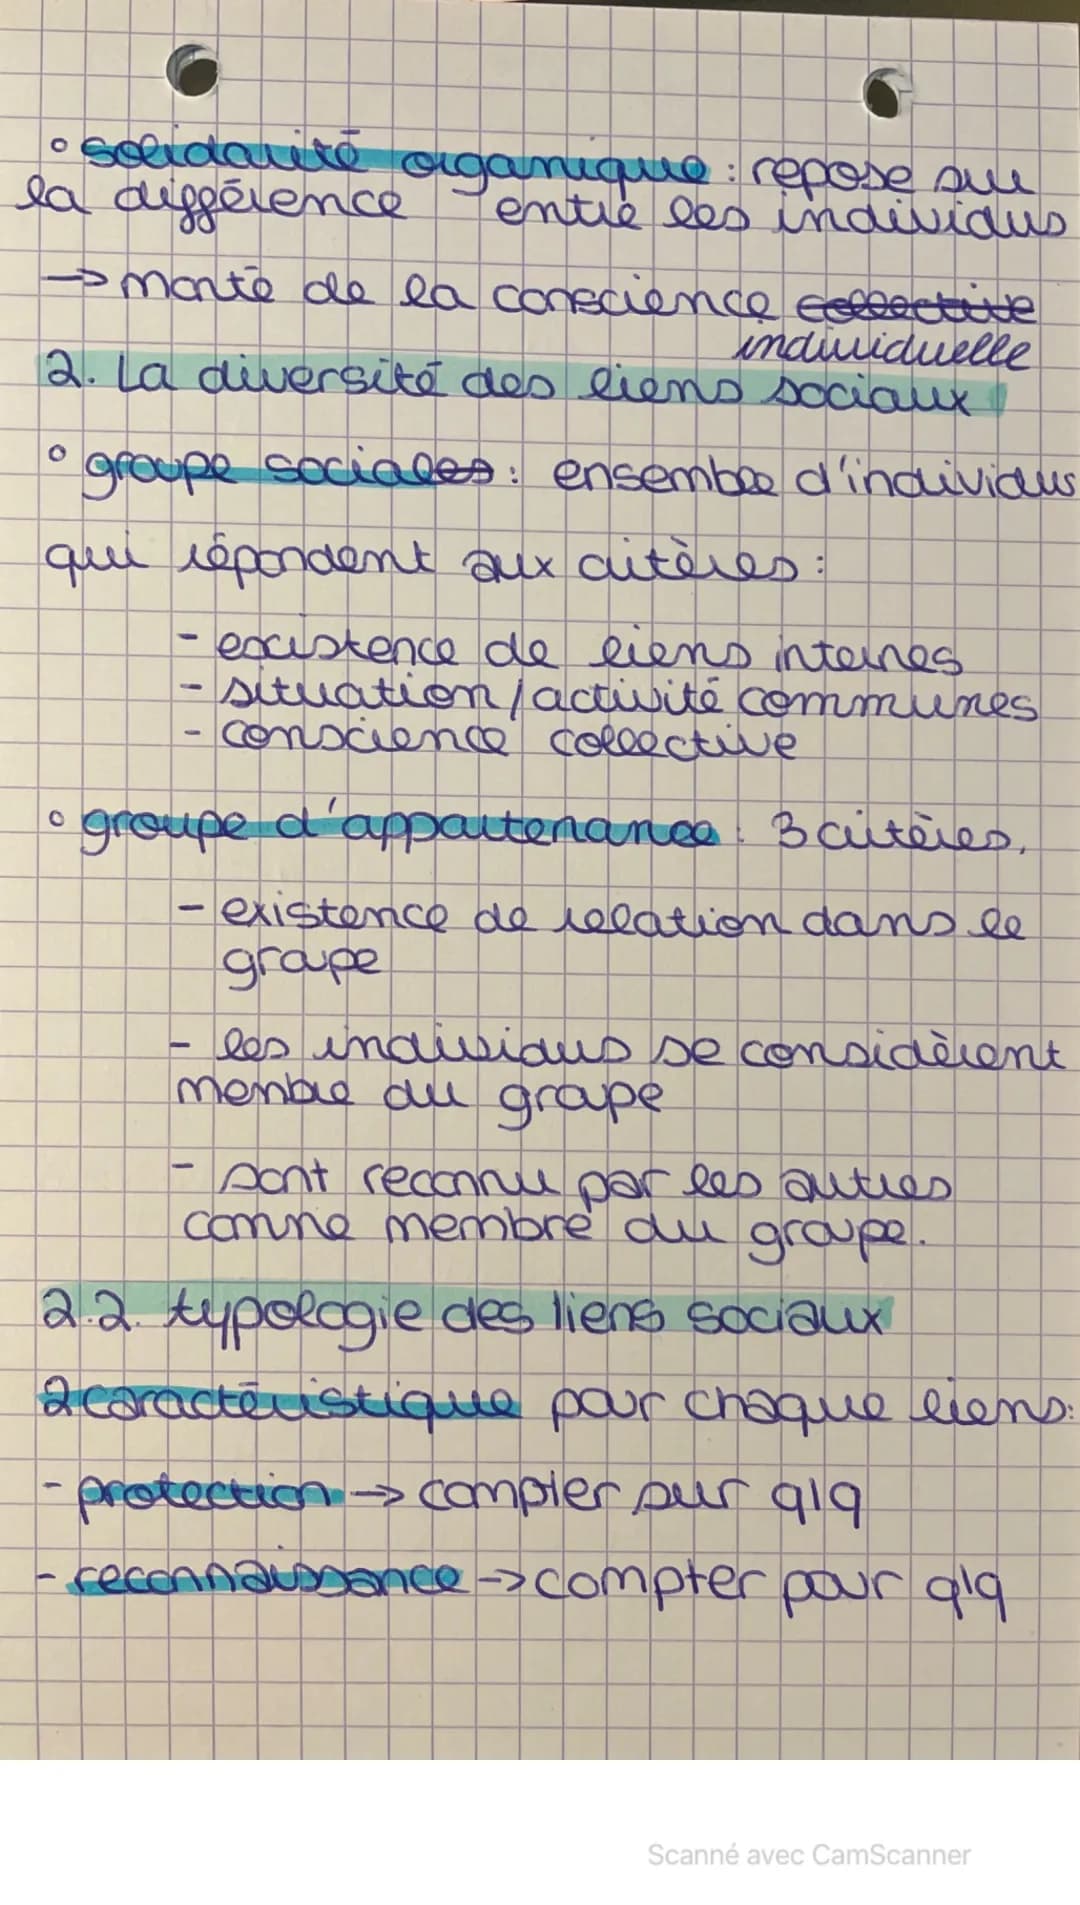 ° solidarité organique : repose sur
la différence entre les individus
→ monté de la conscience collective
individuelle
2. La diversité des liens sociaux
° groupe sociales : ensemble d'individus
qui répondent aux critères :
- existence de liens internes
- situation / activité communes
- conscience collective
° groupe d'appartenance : 3 critères.
- existence de relation dans le
groupe
- les individus se considèrent
membre du groupe
- sont reconnu par les autres
comme membre du groupe.
2.2. typologie des liens sociaux
2 caractéristique pour chaque liens :
- protection → compter sur qlq
- reconnaissance → compter pour qlq
Scanné avec CamScanner